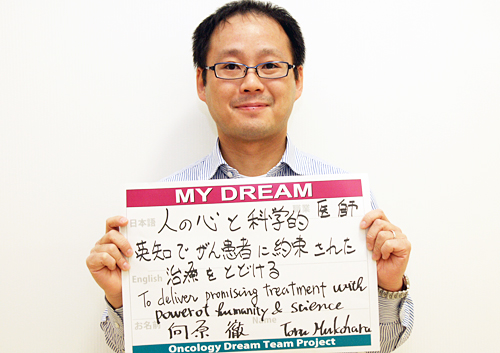 MY DREAM
日本語 人の心と科学的 職業 医師
英知でがん患者に約束された
治療をとどける
English
To deliver promising treatment with
power of humanity & science
お名前 向原 徹 Name Toru Mukohara
Oncology Dream Team Project